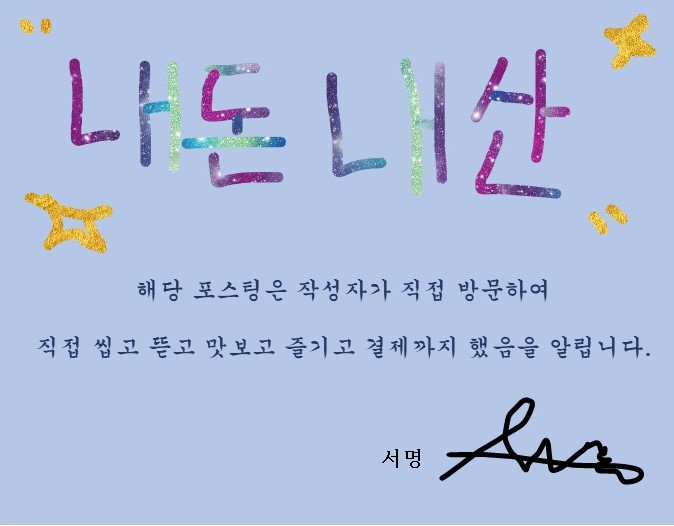 "내돈내산"
해당 포스팅은 작성자가 직접 방문하여
직접 씹고 뜯고 맛보고 즐기고 결제까지 했음을 알립니다.
서명